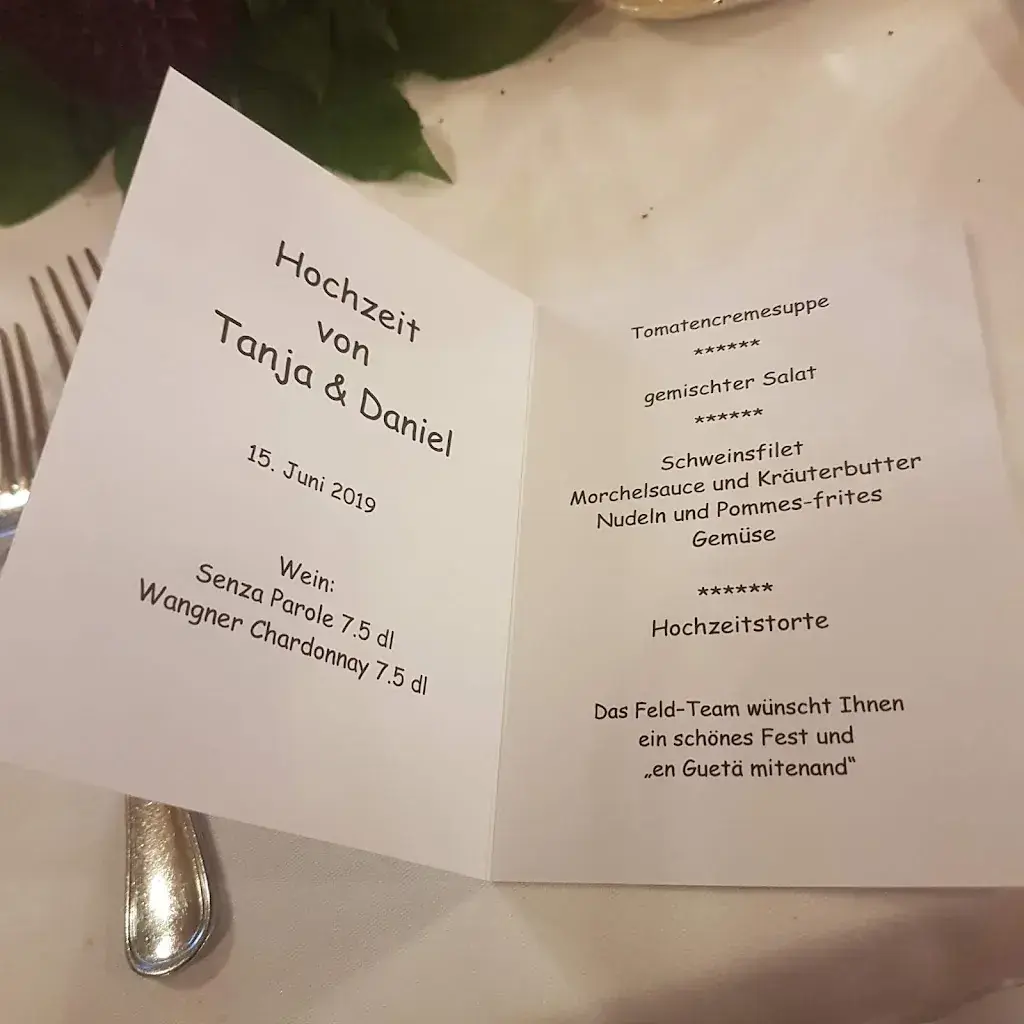 Hochzeit
von
Tanja & Daniel
15. Juni 2019
Wein:
Senza Parole 7.5 dl
Wangner Chardonnay 7.5 dl
Tomatencremesuppe
******
gemischter Salat
******
Schweinsfilet
Morchelsauce und Kräuterbutter
Nudeln und Pommes-frites
Gemüse
******
Hochzeitstorte
Das Feld-Team wünscht Ihnen
ein schönes Fest und
„en Guetä mitenand“